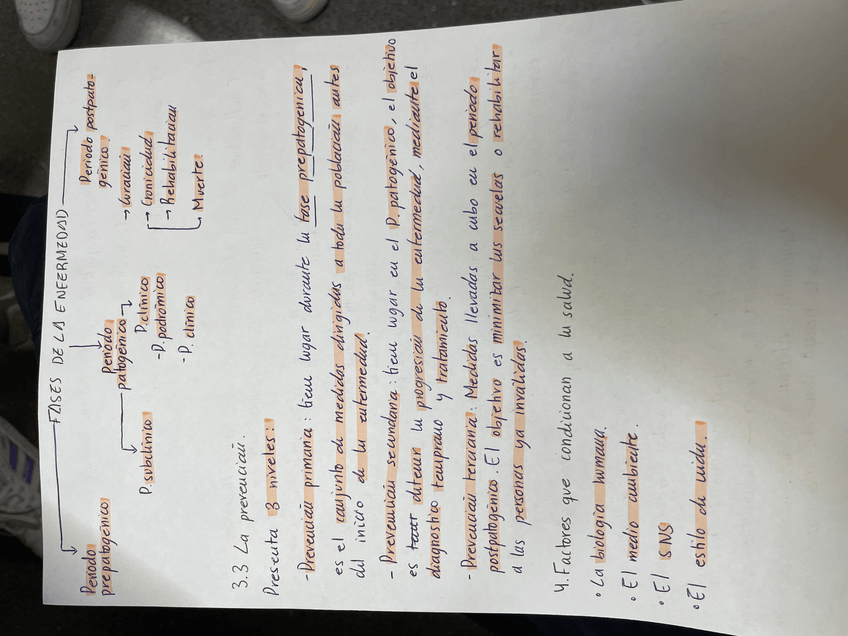 FASES DE LA ENFERMEDAD
Periodo
prepatogénico
Periodo
patogénico
P. subclínico
P. clínico
- P. podrómico
- P. clínico
Periodo postpato-
génico:
→ Curación
→ Cronicidad
→ Rehabilitación
→ Muerte
3.3 La prevención.
Presenta 3 niveles:
- Prevención primaria: tiene lugar durante la fase prepatogenica,
es el conjunto de medidas dirigidas a toda la población antes
del inicio de la enfermedad.
- Prevención secundaria: tiene lugar en el P. patogénico, el objetivo
es detener la progresión de la enfermedad, mediante el
diagnostico temprano y tratamiento.
- Prevención terciaria: Medidas llevadas a cabo en el periodo
postpatogénico. El objetivo es minimitar las secuelas o rehabilitar
a las personas ya inválidas.
4. Factores que condicionan a la salud.
• La biología humana.
• El medio ambiente.
• El SNS
• El estilo de vida.